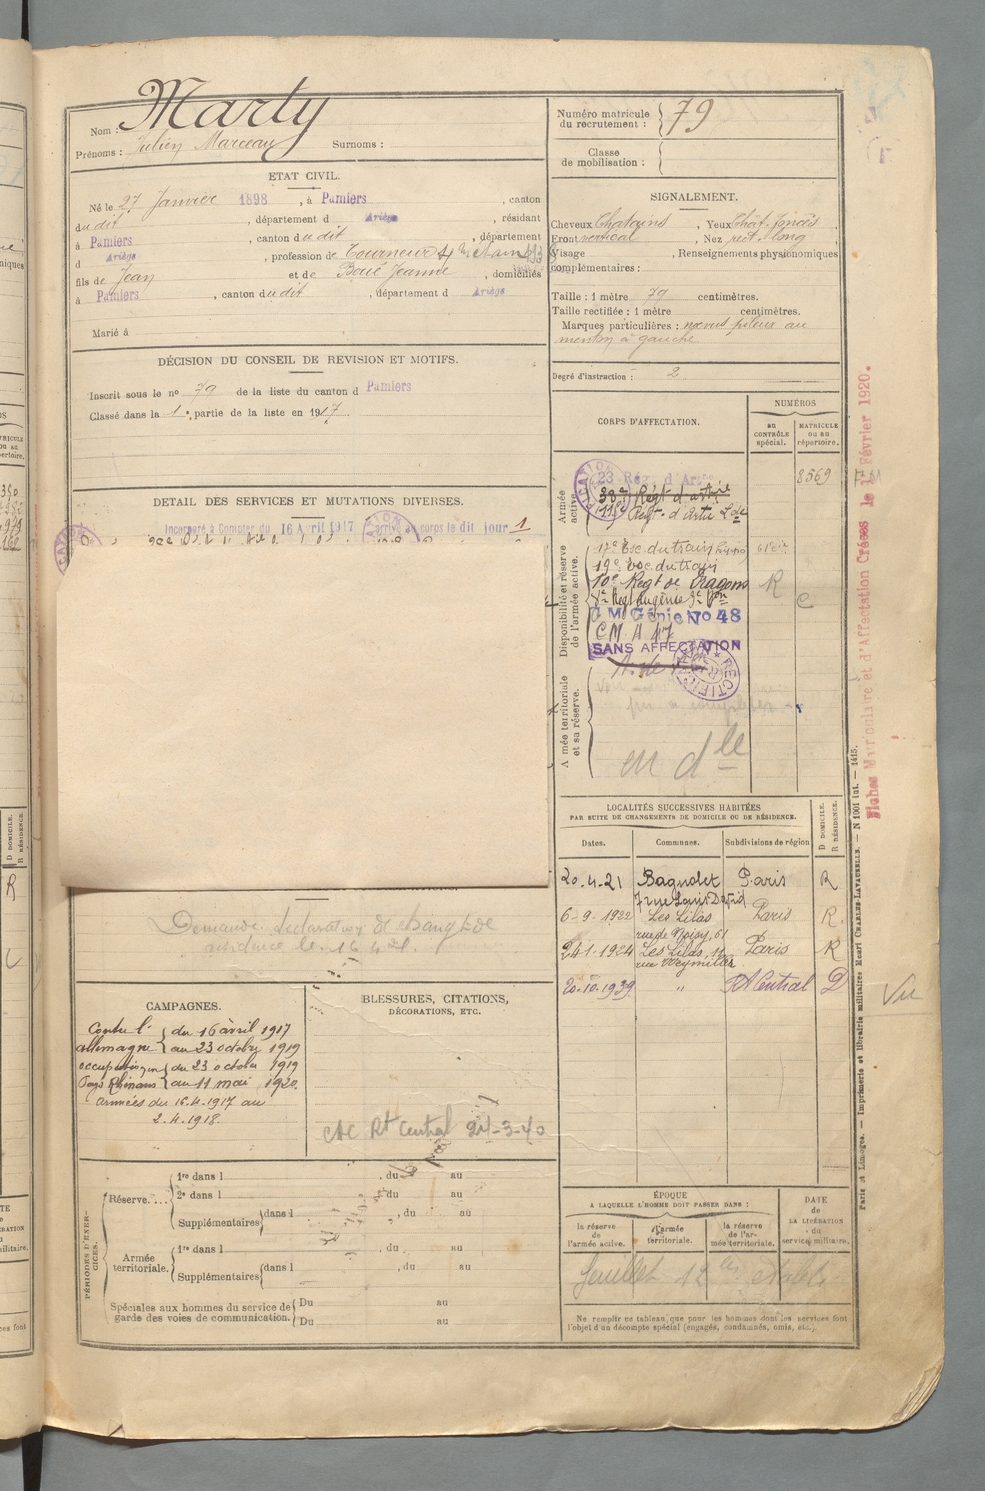 Nom : Marty
Prénoms : Julien Marceau Surnoms :
ETAT CIVIL.
Né le 27 Janvier 1898, à Pamiers, canton
dudit, département d Ariège, résidant
à Pamiers, canton dudit, département
d Ariège, profession de Tourneur
fils de Jean et de Boué Jeanne, domiciliés
à Pamiers, canton dudit, département d Ariège
Marié à
DÉCISION DU CONSEIL DE REVISION ET MOTIFS.
Inscrit sous le no 79 de la liste du canton d Pamiers
Classé dans la 1e partie de la liste en 1917.
DETAIL DES SERVICES ET MUTATIONS DIVERSES.
Incorporé à Compter du 16 Avril 1917 arrivé au corps le dit jour
Demande déclaration de chang de
résidence le 16.4.21.
CAMPAGNES.
Contre l' du 16 avril 1917
allemagne au 23 octobre 1919
occupation du 23 octobre 1919
Pays Rhénans au 11 mai 1920.
Armées du 16.4.1917 au
2.4.1918.
BLESSURES, CITATIONS,
DÉCORATIONS, ETC.
Rt Central 24-3-40
PÉRIODES D'EXERCICES.
Réserve....
1re dans l , du au
2e dans l , du au
Supplémentaires dans l , du au
Armée territoriale.
1re dans l , du au
Supplémentaires dans l , du au
Spéciales aux hommes du service de
garde des voies de communication.
Du au
Du au
Numéro matricule
du recrutement : 79
Classe
de mobilisation :
SIGNALEMENT.
Cheveux Chatains, Yeux Chât. foncés
Front vertical, Nez rect. long
Visage , Renseignements physionomiques
complémentaires :
Taille : 1 mètre 79 centimètres.
Taille rectifiée : 1 mètre centimètres.
Marques particulières : nævus pileux au
menton à gauche
Degré d'instruction : 2
CORPS D'AFFECTATION.
NUMÉROS
au
CONTRÔLE
spécial.
MATRICULE
ou au
répertoire.
Armée
active.
23 Régt d'Artie 8569
38e Régt d'artie
115e Régt d'Artie Lde
Disponibilité et réserve
de l'armée active.
17e Esc. du train
19e Esc. du train
10e Régt de Dragons R
C M Génie No 48
C M A 47
SANS AFFECTATION
Armée territoriale
et sa réserve.
en dle
LOCALITÉS SUCCESSIVES HABITÉES
PAR SUITE DE CHANGEMENTS DE DOMICILE OU DE RÉSIDENCE.
Dates. Communes. Subdivisions de région D DOMICILE. R RÉSIDENCE.
20.4.21 Bagnolet Paris R
7 rue Louis David
6-9-1922 Les Lilas Paris R
rue de Noisy, 61
24.1.1924 Les Lilas, 11 Paris R
rue Weymiller
20.10.1939 " Rt Central D
Vu
ÉPOQUE
A LAQUELLE L'HOMME DOIT PASSER DANS :
la réserve
de l'armée active.
l'armée
territoriale.
la réserve
de l'armée territoriale.
DATE
de
LA LIBÉRATION
du
service militaire.
Feuillet 12
Ne remplir ce tableau que pour les hommes dont les services font
l'objet d'un décompte spécial (engagés, condamnés, omis, etc.).
Fiches Matriculaire et d'Affectation Créées le 1er Février 1920.
Paris et Limoges. — Imprimerie et librairie militaires Henri CHARLES-LAVAUZELLE. — N 1001 int. — 1415.